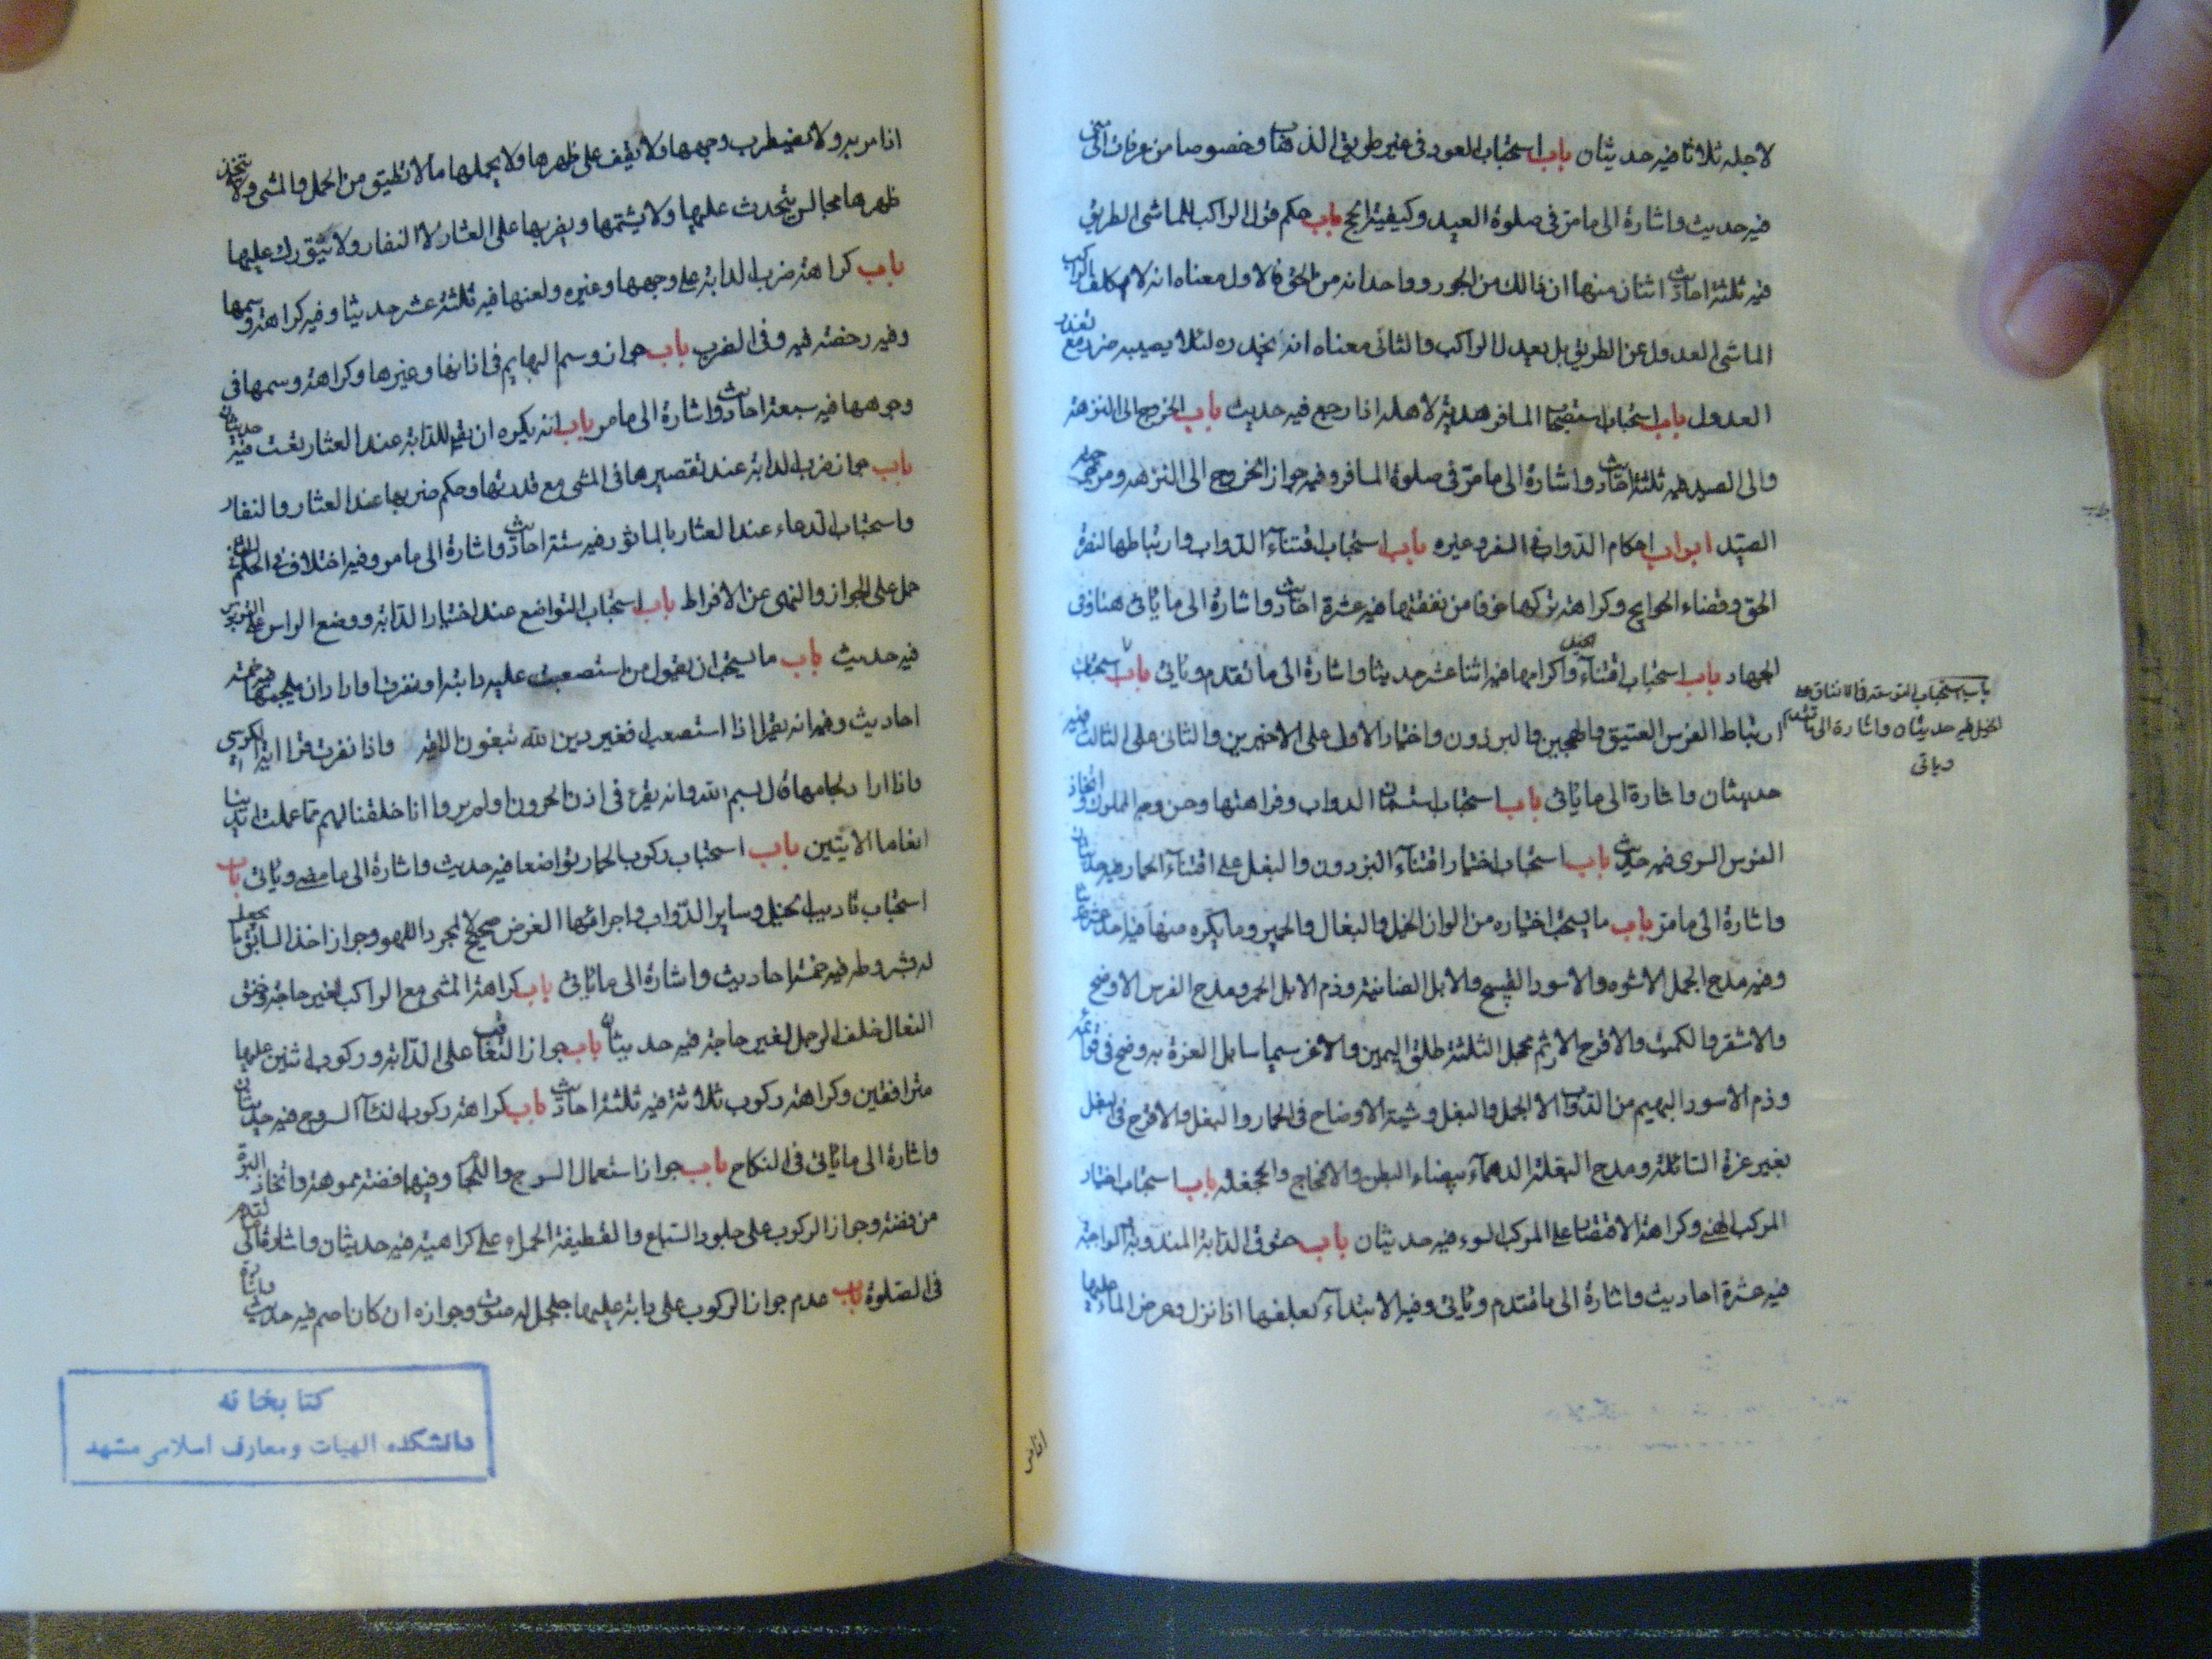 لاجله ثلاثا فيه حديثان باب استحباب العود في غير طريق الذهاب وخصوصا من عرفات الى منى
فيه حديث واشارة الى ما مر في صلوة العيد وكيفية الحج باب حكم قول الراكب للماشى الطريق
فيه ثلثة احاديث اثنان منها ان ذلك من الجور وواحد انه من الحق فالاول معناه انه لا يكلف الراكب
الماشى العدول عن الطريق بل يعدل الراكب والثانى معناه انه يحذره لئلا يصيبه ضرر مع تعذر
العدول باب استحباب استصحاب المسافر هدية لاهله اذا رجع فيه حديث باب الخروج الى النزهة
والى الصيد فيه ثلثة احاديث واشارة الى ما مر في صلوة المسافر وفيه جواز الخروج الى النزهة
الصيد ابواب احكام الدواب في السفر وغيره باب استحباب اقتناء الدواب وارتباطها لنصرة
الحق وقضاء الحوايج وكراهة تركها خوفا من نفقتها فيه عشرة احاديث واشارة الى ما يأتى هنا وفى
الجهاد باب استحباب اقتناء الخيل واكرامها فيه اثنا عشر حديثا واشارة الى ما تقدم ويأتى باب استحباب
باب استحباب التوسعة في الانفاق على
الخيل فيه حديثان واشارة الى ما تقدم
ويأتى
ارتباط الفرس العتيق والهجين والبرذون واختيار الاول على الاخيرين والثانى على الثالث فيه
حديثان واشارة الى ما يأتى باب استحباب استسمان الدواب وفراهتها وحسن وجه المملوك واتخاذ
الفرس السرى فيه حديث باب استحباب اختيار اقتناء البرذون والبغل على اقتناء الحمار فيه حديثان
واشارة الى ما مر باب ما يستحب اختياره من الوان الخيل والبغال والحمير وما يكره منها فيه احد عشر حديثا
وفيه مدح الجمل الاشوه والاسود القبيح والابل الضانية وذم الابل الحمر ومدح الفرس الاوضح
والاشقر والكميت والاقرح الارثم محجل الثلثة طلق اليمين والاغر سيما سايل الغرة به وضح في قوائمه
وذم الاسود البهيم من الدواب الا الجمل والبغل وشية الاوضاح في الحمار والبغل والاقرح في البغل
بغير غرة السائلة ومدح البغلة الدهماء بيضاء البطن والافحاج والجحفلة باب استحباب اختيار
المركب الهنئ وكراهة الاقتصار على المركب السوء فيه حديثان باب حقوق الدابة المندوبة والواجبة
فيه عشرة احاديث واشارة الى ما تقدم ويأتى وفيه الابتداء بعلفها اذا نزل وعرض الماء عليها
اذا مر به ولا يضرب وجهها ولا يقف على ظهرها ولا يحملها ما لا تطيق من الحمل والمشى ولا يتخذ
ظهرها مجالس يتحدث عليها ولا يشتمها ويضربها على العثار لا النفار ولا يتورك عليها
باب كراهة ضرب الدابة على وجهها وغيره ولعنها فيه ثلثة عشر حديثا وفيه كراهة وسمها
وفيه رخصة فيه وفى الضرب باب جواز وسم البهايم في اذانها وغيرها وكراهة وسمها في
وجوهها فيه سبعة احاديث واشارة الى ما مر باب انه يكره ان يقول للدابة عند العثار تعست فيه حديثان
باب جواز ضرب الدابة عند تقصيرها في المشى مع قدرتها وحكم ضربها عند العثار والنفار
واستحباب الدعاء عند العثار بالماثور فيه ستة احاديث واشارة الى ما مر وفيه اختلاف في الحكم الثانى
حمل على الجواز والنهى عن الافراط باب استحباب التواضع عند اختيار الدابة ووضع الراس على القربوس
فيه حديث باب ما يستحب ان يقول من استصعبت عليه دابته او نفرت او اراد ان يلجمها فيه خمسة
احاديث وفيه انه يقرا اذا استصعبت افغير دين الله تبغون الاية واذا نفرت قرا اية الكرسى
واذا اراد لجامها قال بسم الله وانه يقرء في اذن الحرون اولم يروا انا خلقنا لهم مما عملت ايدينا
انعاما الايتين باب استحباب ركوب الحمار تواضعا فيه حديث واشارة الى ما مضى ويأتى باب
استحباب تاديب الخيل وساير الدواب واجرائها الغرض صحيح لا لمجرد اللهو وجواز اخذ السابق ما يجعل
له بشروطه فيه خمسة احاديث واشارة الى ما يأتى باب كراهة المشى مع الراكب لغير حاجة وخفق
النعال خلف الرجل لغير حاجة فيه حديثان باب جواز التعاقب على الدابة وركوب اثنين عليها
مترادفين وكراهة ركوب ثلاثة فيه ثلثة احاديث باب كراهة ركوب النساء السروج فيه حديثان
واشارة الى ما يأتى في النكاح باب جواز استعمال السرج واللجام وفيها فضة مموهة واتخاذ البرة
من فضة وجواز الركوب على جلود السباع والقطيفة الحمراء على كراهية فيه حديثان واشارة الى ما تقدم
في الصلوة باب عدم جواز الركوب على دابة عليها جلجل له صوت وجوازه ان كان اصم فيه حديث واشارة
كتابخانه
دانشکده الهیات ومعارف اسلامی مشهد